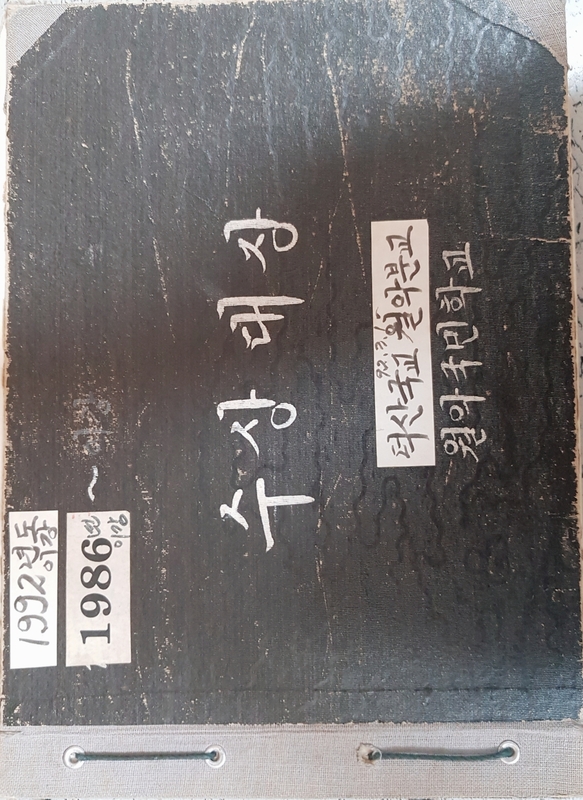 1992년
1986년 ~
수 상 대 장
덕산국교 월악분교
월악국민학교